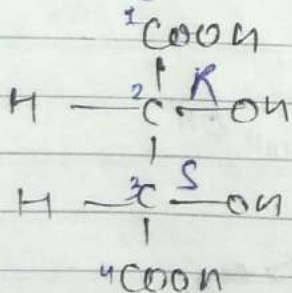 1COOH
H — 2C — R OH
H — 3C — S OH
4COOH